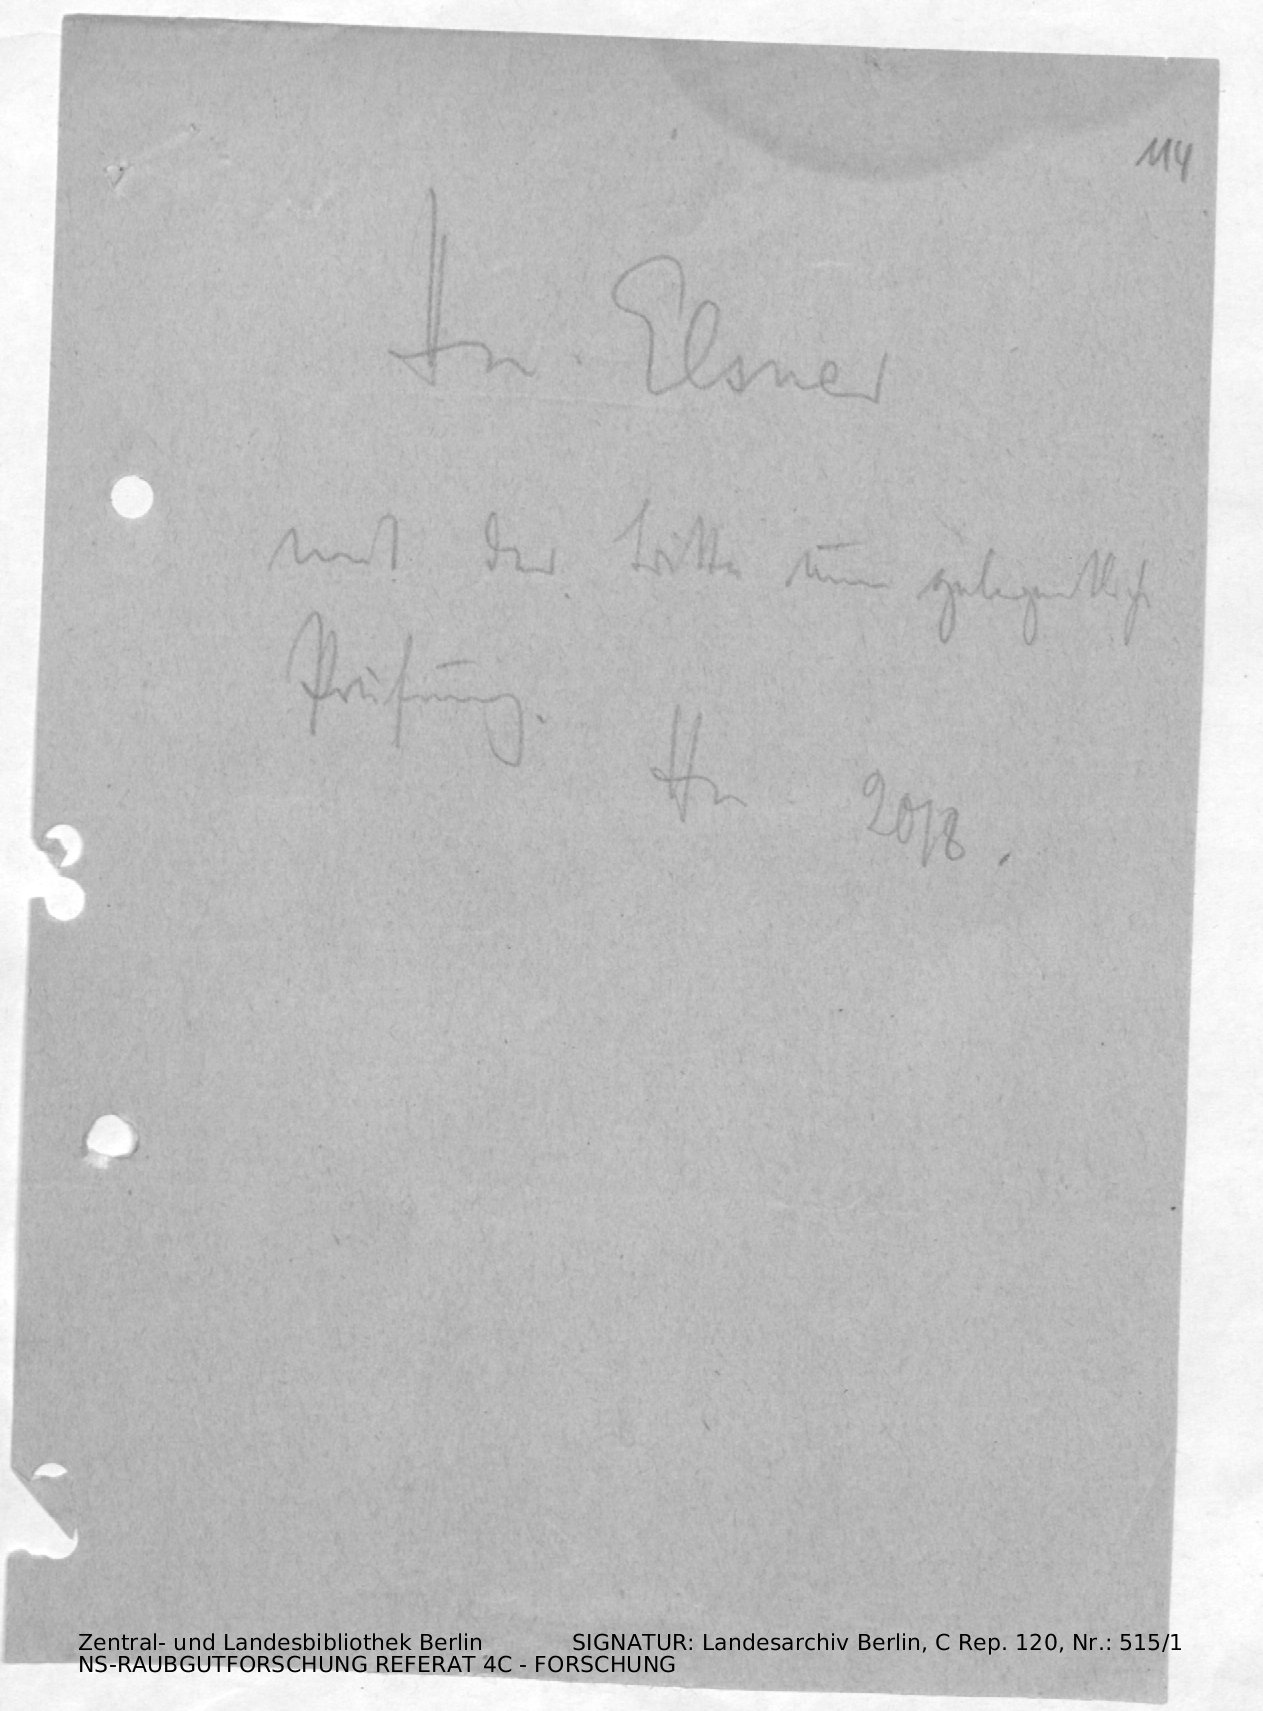 114
Hn. Elsner
mit der Bitte um gelegentlich
Prüfung.
Hn 20/8.
Zentral- und Landesbibliothek Berlin SIGNATUR: Landesarchiv Berlin, C Rep. 120, Nr.: 515/1
NS-RAUBGUTFORSCHUNG REFERAT 4C - FORSCHUNG